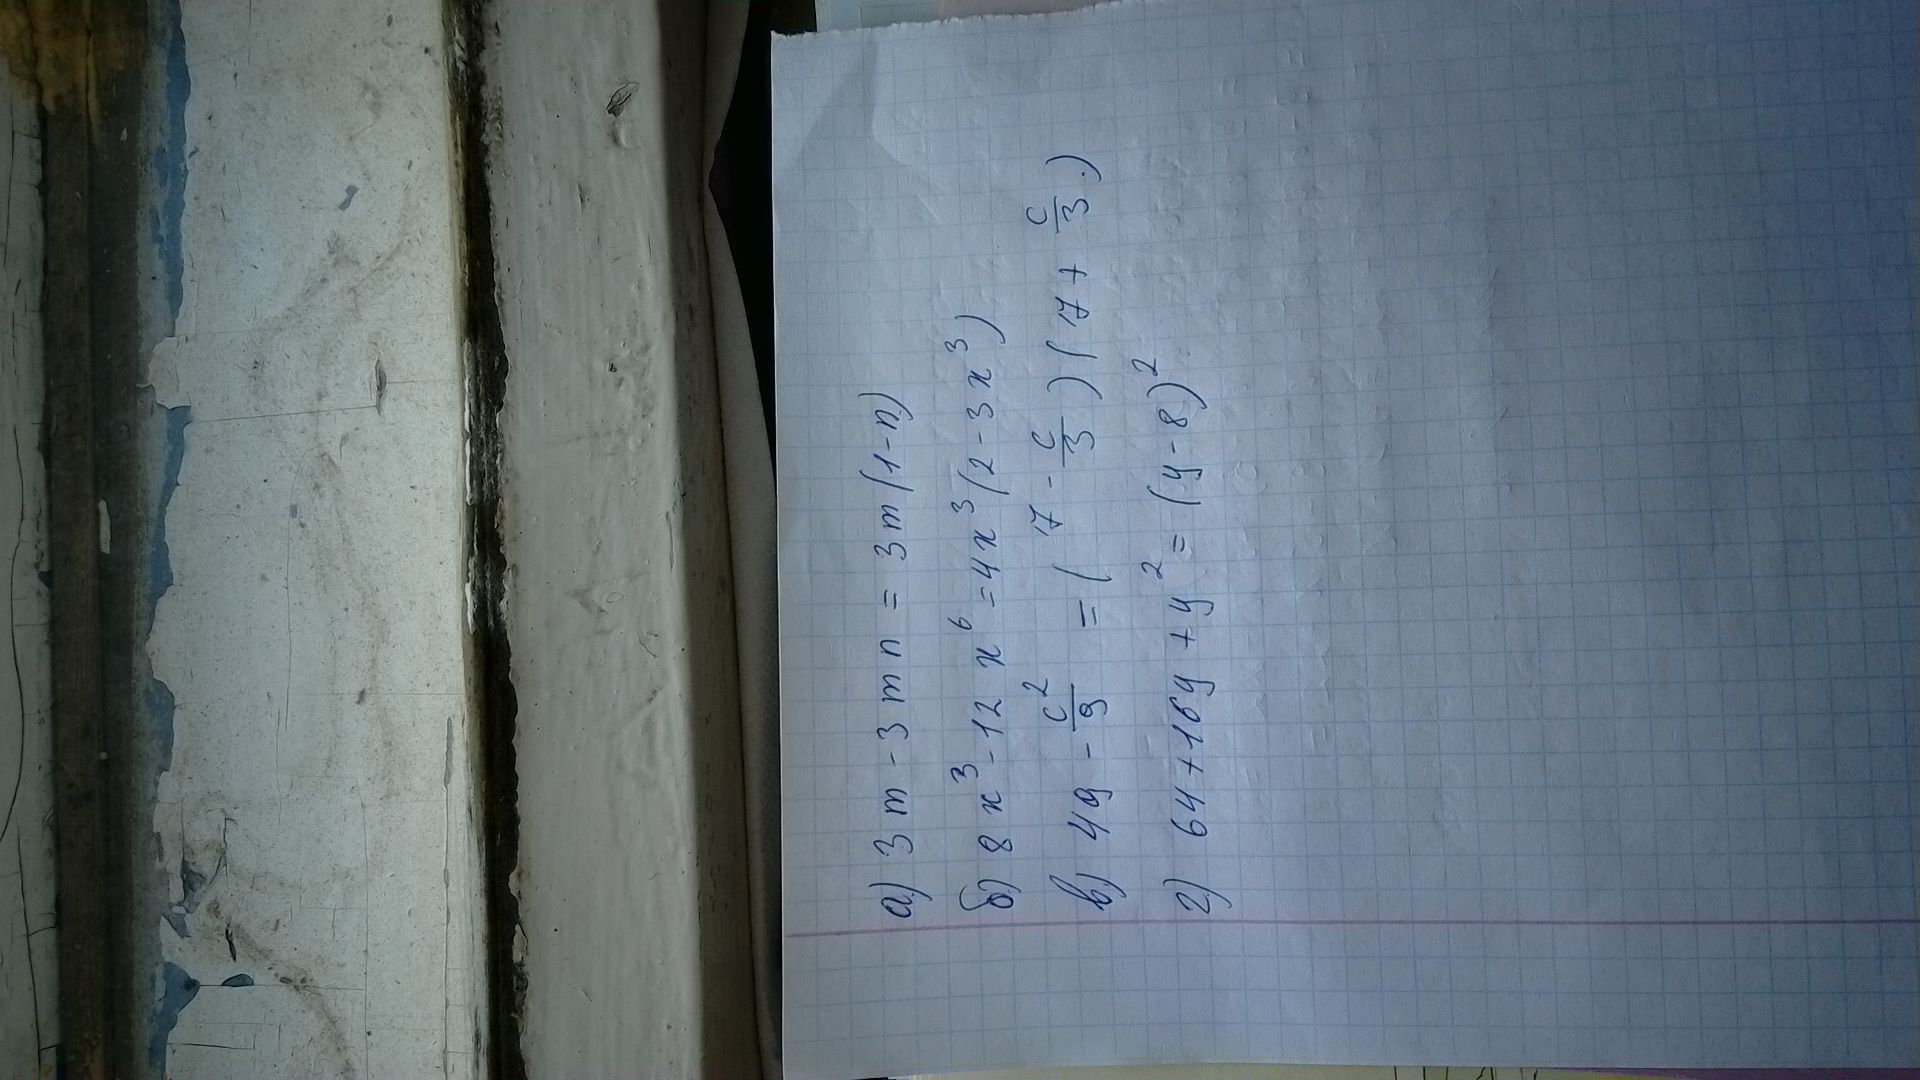 а) 3m - 3mn = 3m(1-n)
б) 8x³ - 12x⁶ = 4x³(2 - 3x³)
в) 49 - c²/9 = (17 - c/3)(17 + c/3)
г) 64 + 16y + y² = (y - 8)²